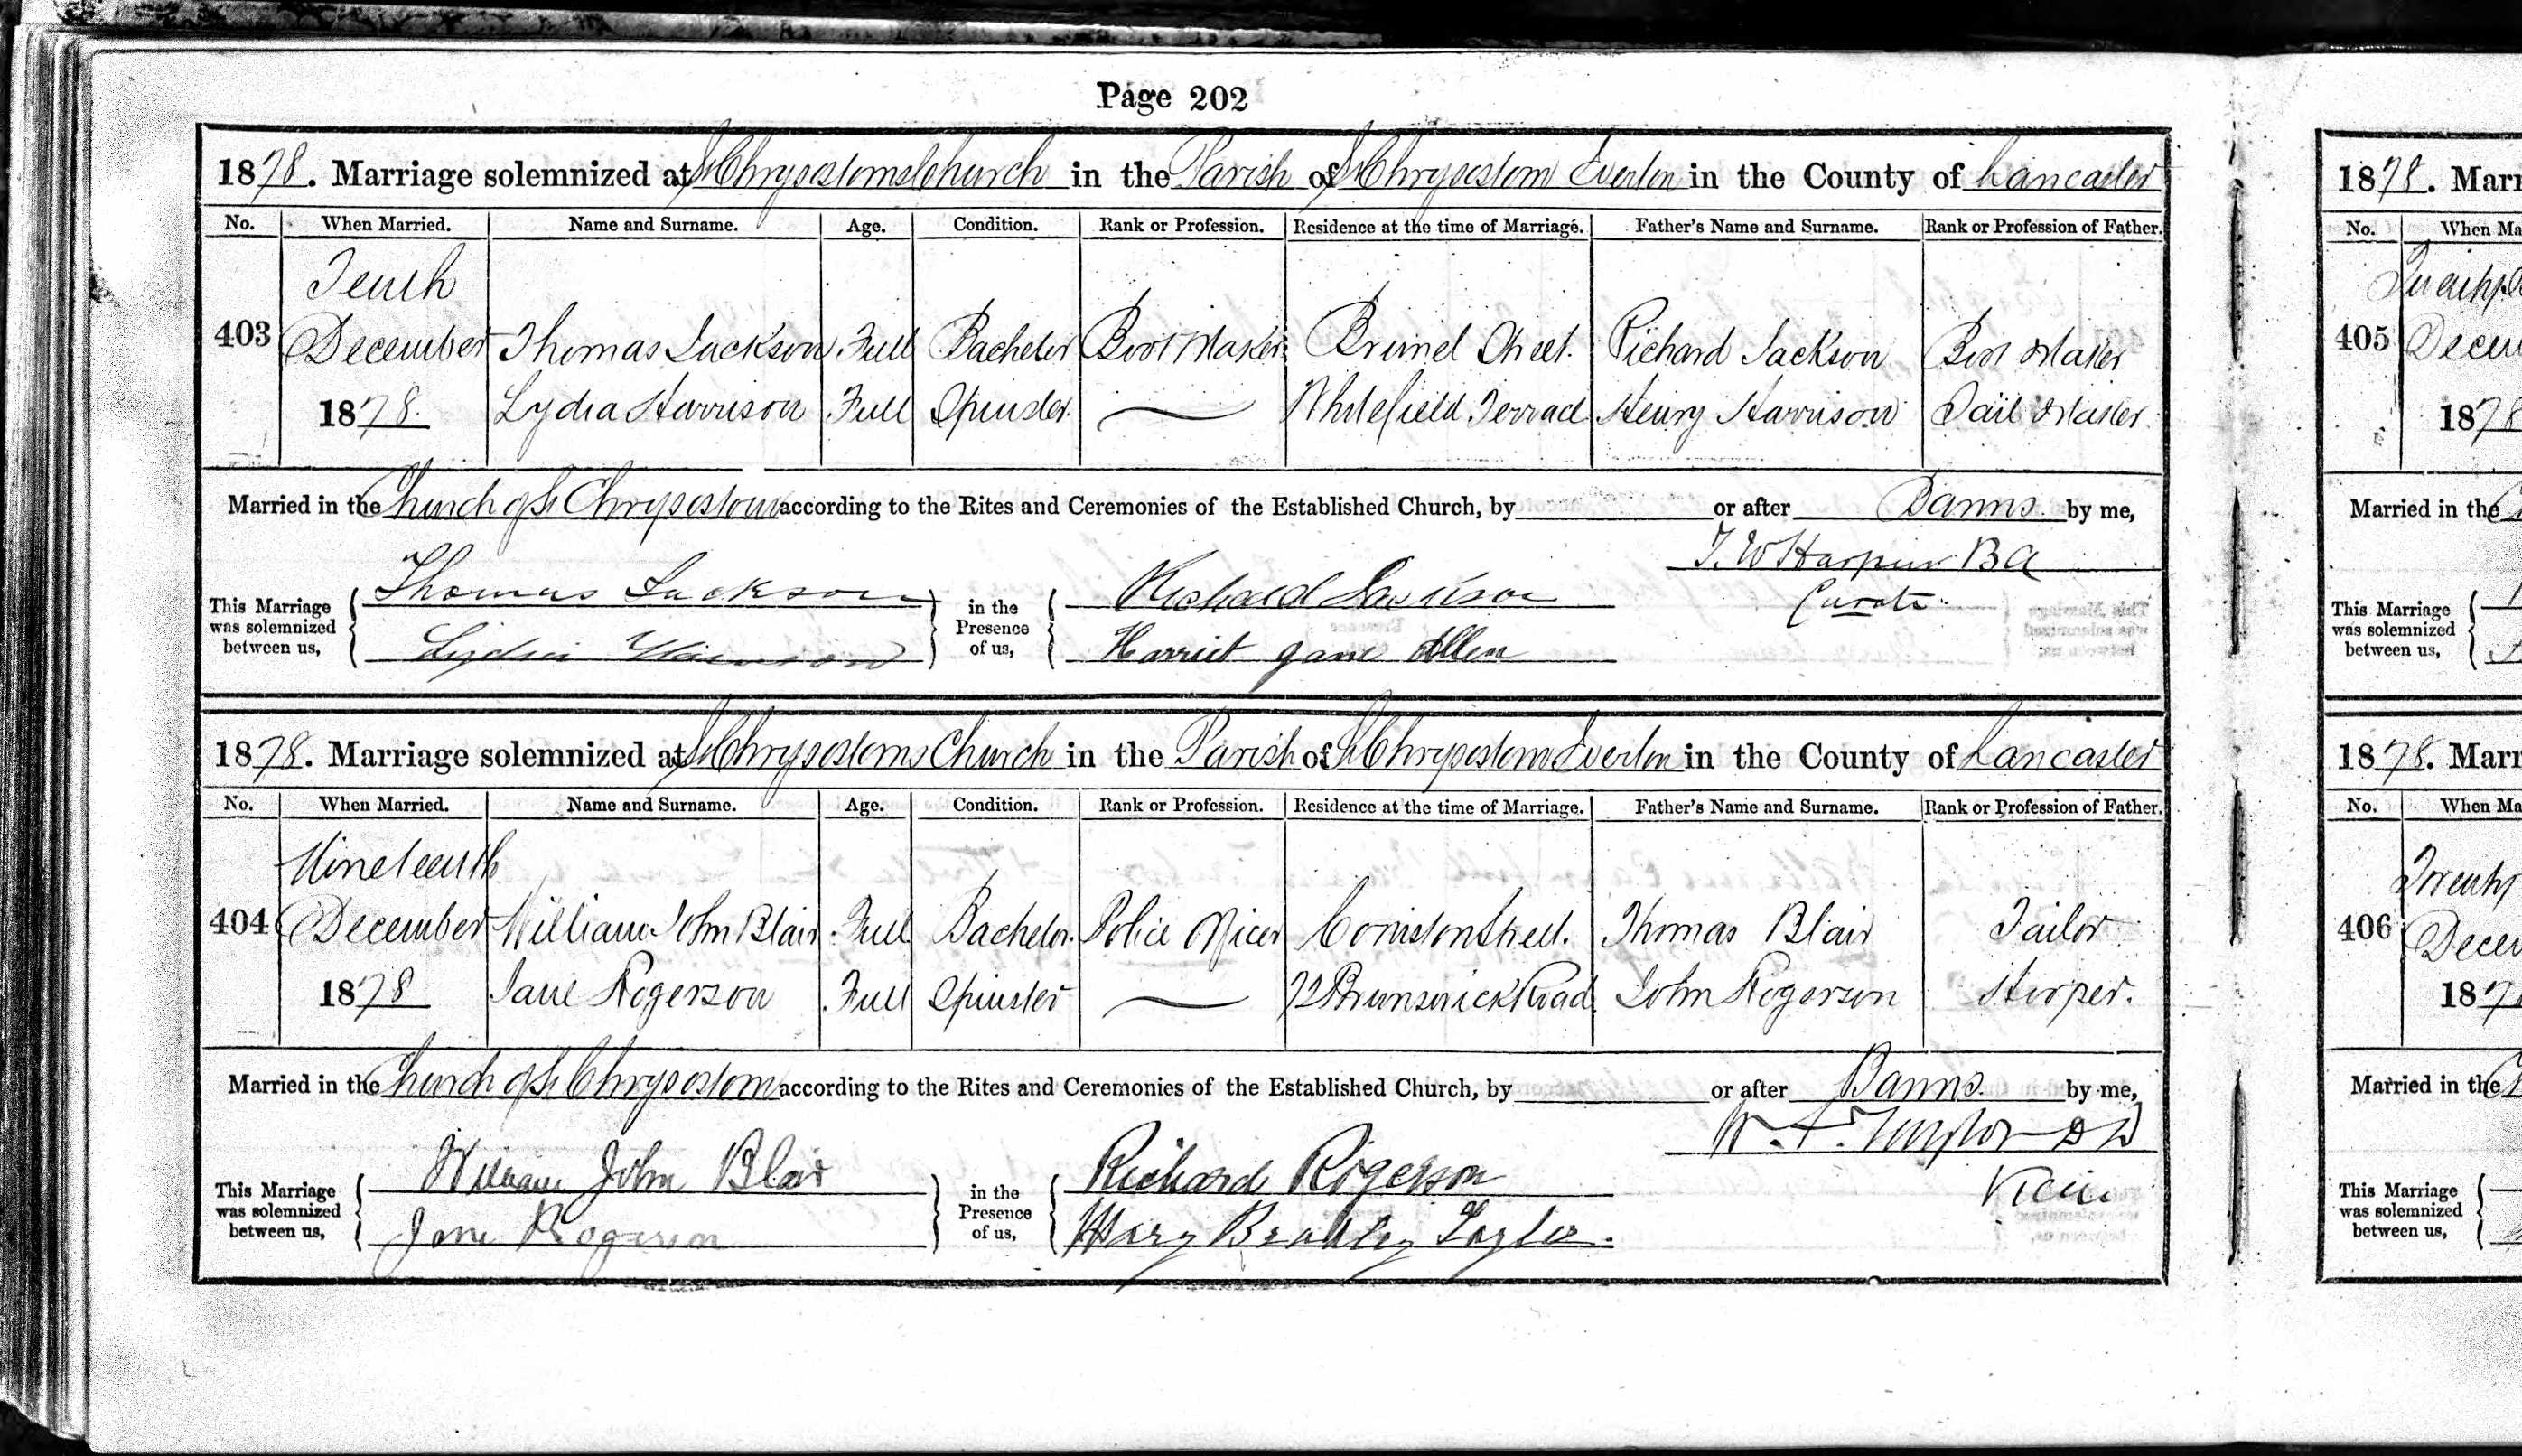 Page 202
1878. Marriage solemnized at St Chrysostoms Church in the Parish of St Chrysostom Everton in the County of Lancaster
No. When Married. Name and Surname. Age. Condition. Rank or Profession. Residence at the time of Marriage. Father's Name and Surname. Rank or Profession of Father.
Tenth
403 December Thomas Jackson Full Bachelor Boot Maker Street. Richard Jackson Boot Maker
1878. Lydia Harrison Full Spinster. Whitefield Terrace Henry Harrison Sail Maker.
Married in the Church of St Chrysostom according to the Rites and Ceremonies of the Established Church, by or after Banns by me,
T. W. BA
Curate
This Marriage was solemnized between us, Thomas Jackson in the Presence of us, Richard Jackson
Lydia Harrison Harriet Jane Allen
1878. Marriage solemnized at St Chrysostoms Church in the Parish of St Chrysostom Everton in the County of Lancaster
No. When Married. Name and Surname. Age. Condition. Rank or Profession. Residence at the time of Marriage. Father's Name and Surname. Rank or Profession of Father.
Nineteenth
404 December William John Blair Full Bachelor. Police Officer Coniston Street. Thomas Blair Tailor
1878 Jane Rogerson Full Spinster 72 Brunswick Road John Rogerson
Married in the Church of St Chrysostom according to the Rites and Ceremonies of the Established Church, by or after Banns by me,
W. F. Taylor DD
Vicar
This Marriage was solemnized between us, William John Blair in the Presence of us, Richard Rogerson
Jane Rogerson Mary
1878. Marr
No. When Ma
405
1878
Married in the
This Marriage
was solemnized
between us,
1878. Marr
No. When Ma
406
187
Married in the
This Marriage
was solemnized
between us,